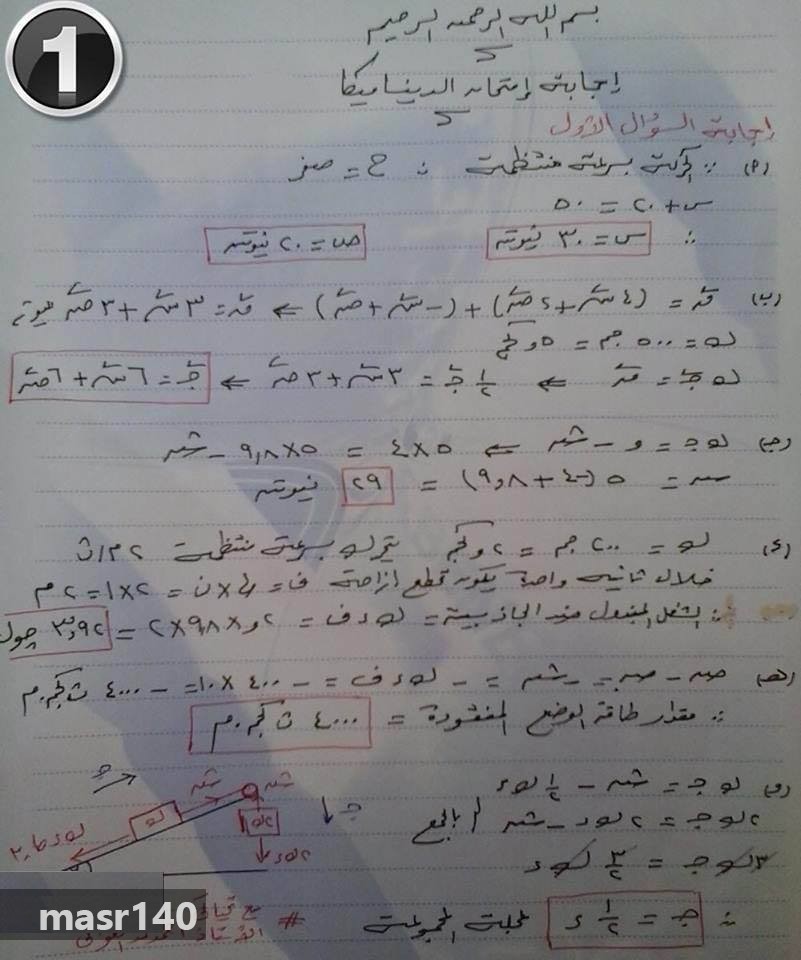 1
بسم الله الرحمن الرحيم
إجابة إمتحان الديناميكا
إجابة السؤال الأول
(أ) ∵ الحركة بسرعة منتظمة ∴ ح = صفر
س + ٢٠ = ٥٠
∴ س = ٣٠ نيوتن ص = ٢٠ نيوتن
(ب) ق = (٤ س + ٢ ص) + (- س + ص) ⇐ ق = ٣ س + ٣ ص نيوتن
ك = ٥٠٠ جم = ٥و كجم
ك جـ = ق ⇐ ½ جـ = ٣ س + ٣ ص ⇐ جـ = ٦ س + ٦ ص
(جـ) ك جـ = و - ش ⇐ ٥ × ٤ = ٥ × ٩,٨ - ش
ش = ٥ (-٤ + ٩,٨) = ٢٩ نيوتن
(د) ك = ٢٠٠ جم = ٢و كجم يتحرك بسرعة منتظمة ٢ م/ث
خلال ثانية واحدة يكون قطع إزاحة ف = ع × ن = ٢ × ١ = ٢ م
∴ الشغل المبذول ضد الجاذبية = ك د ف = ٢و × ٩,٨ × ٢ = ٣,٩٢ جول
(هـ) ض - ض = - ش = - ك د ف = - ٤٠٠ × ١٠ = - ٤٠٠٠ ث كجم . م
∴ مقدار طاقة الوضع المفقودة = ٤٠٠٠ ث كجم . م
(و) ك جـ = ش - ½ ك د
٢ ك جـ = ٢ ك د - ش بالجمع
٣ ك جـ = ٣/٢ ك د
∴ جـ = ½ د عجلة المجموعة
جـ
ش
ش
ك
٢ك
جـ
ك د حا ٣٠
٢ك د
#
masr140